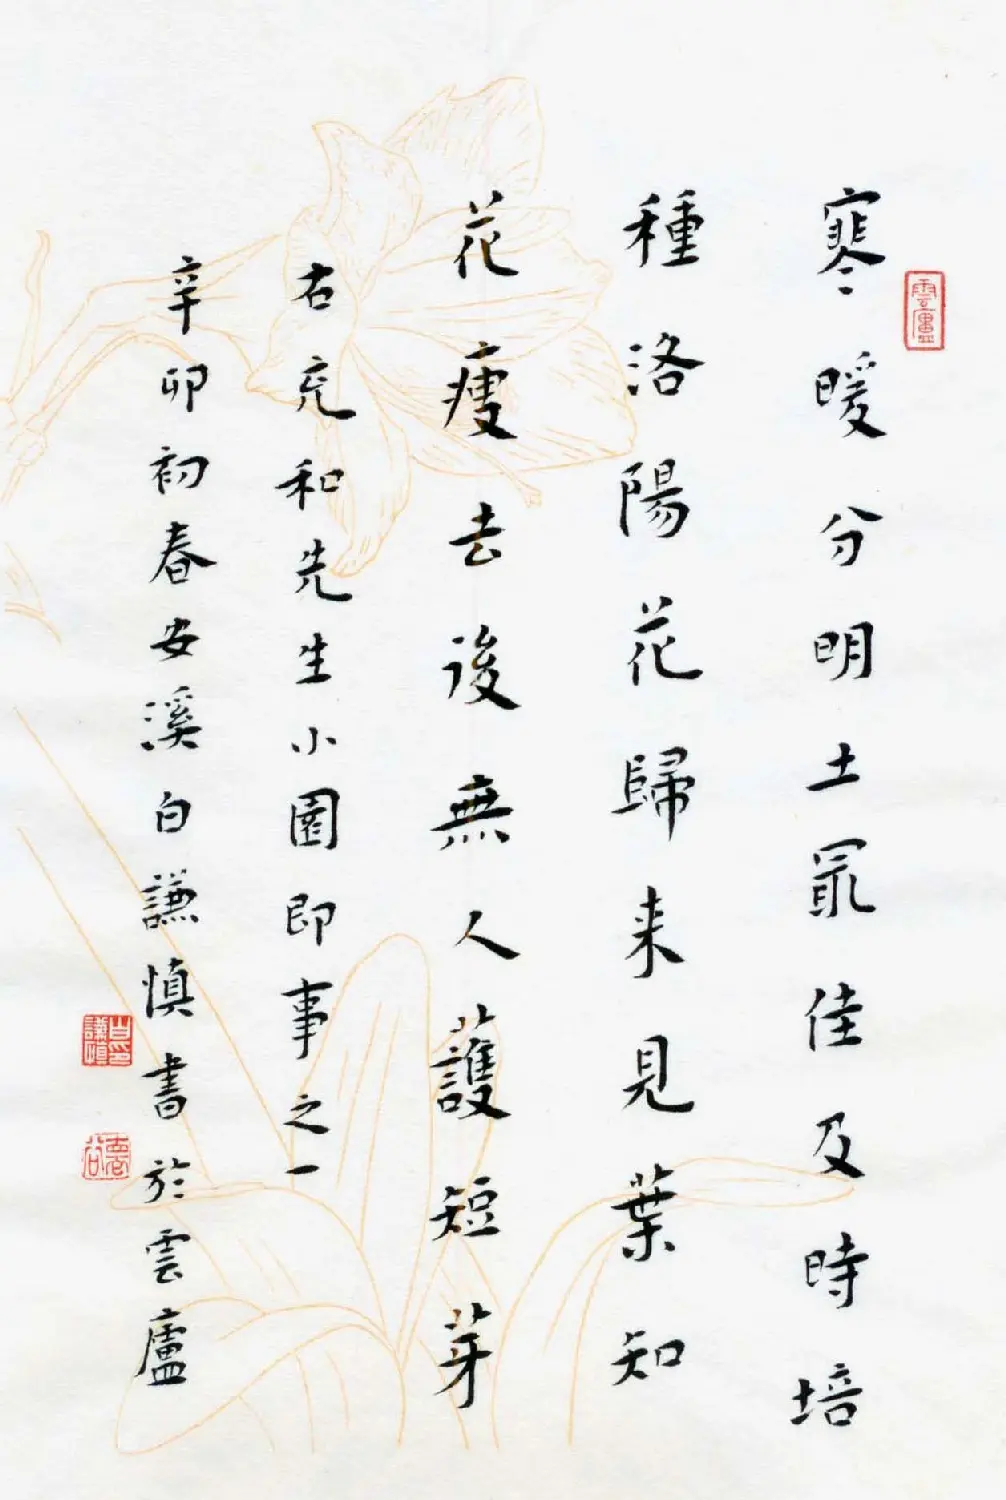 雲廬
寒暖分明土冣佳及時培
種洛陽花歸来見葉知
花瘦去後無人護短芽
右充和先生小園即事之一
辛卯初春安溪白謙慎書於雲廬
白謙慎印